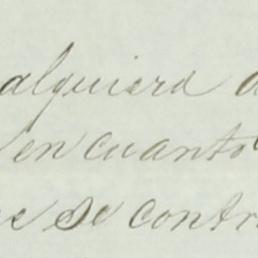 alquiera d
en cuanto
se de contr